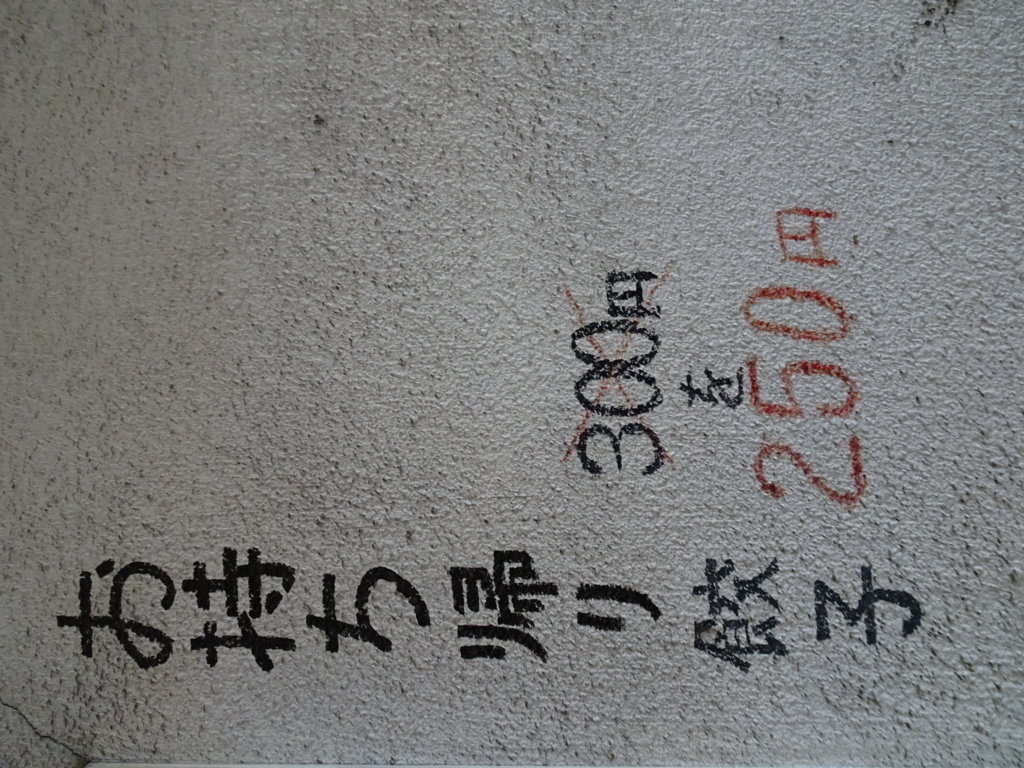 お持ち帰り餃子
300円
を
250円